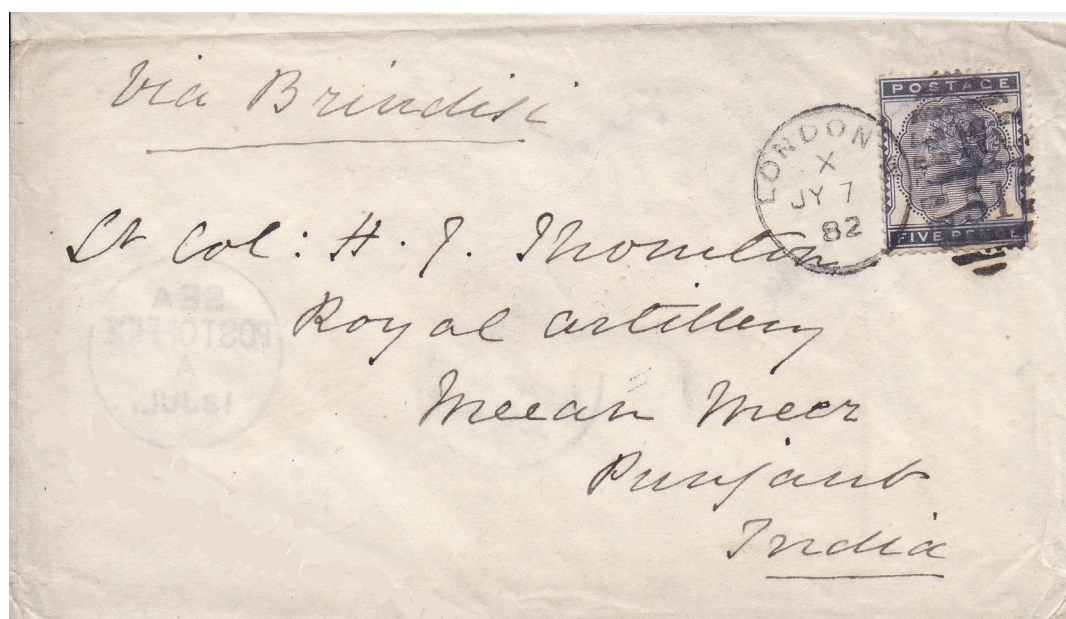 Via Brindisi
POSTAGE
FIVE PENCE
LONDON
X
JY 7
82
Lt Col: H. J. Thornton
Royal Artillery
Meean Meer
Punjaub
India
SEA
POST OFFICE
A
12 JUL.